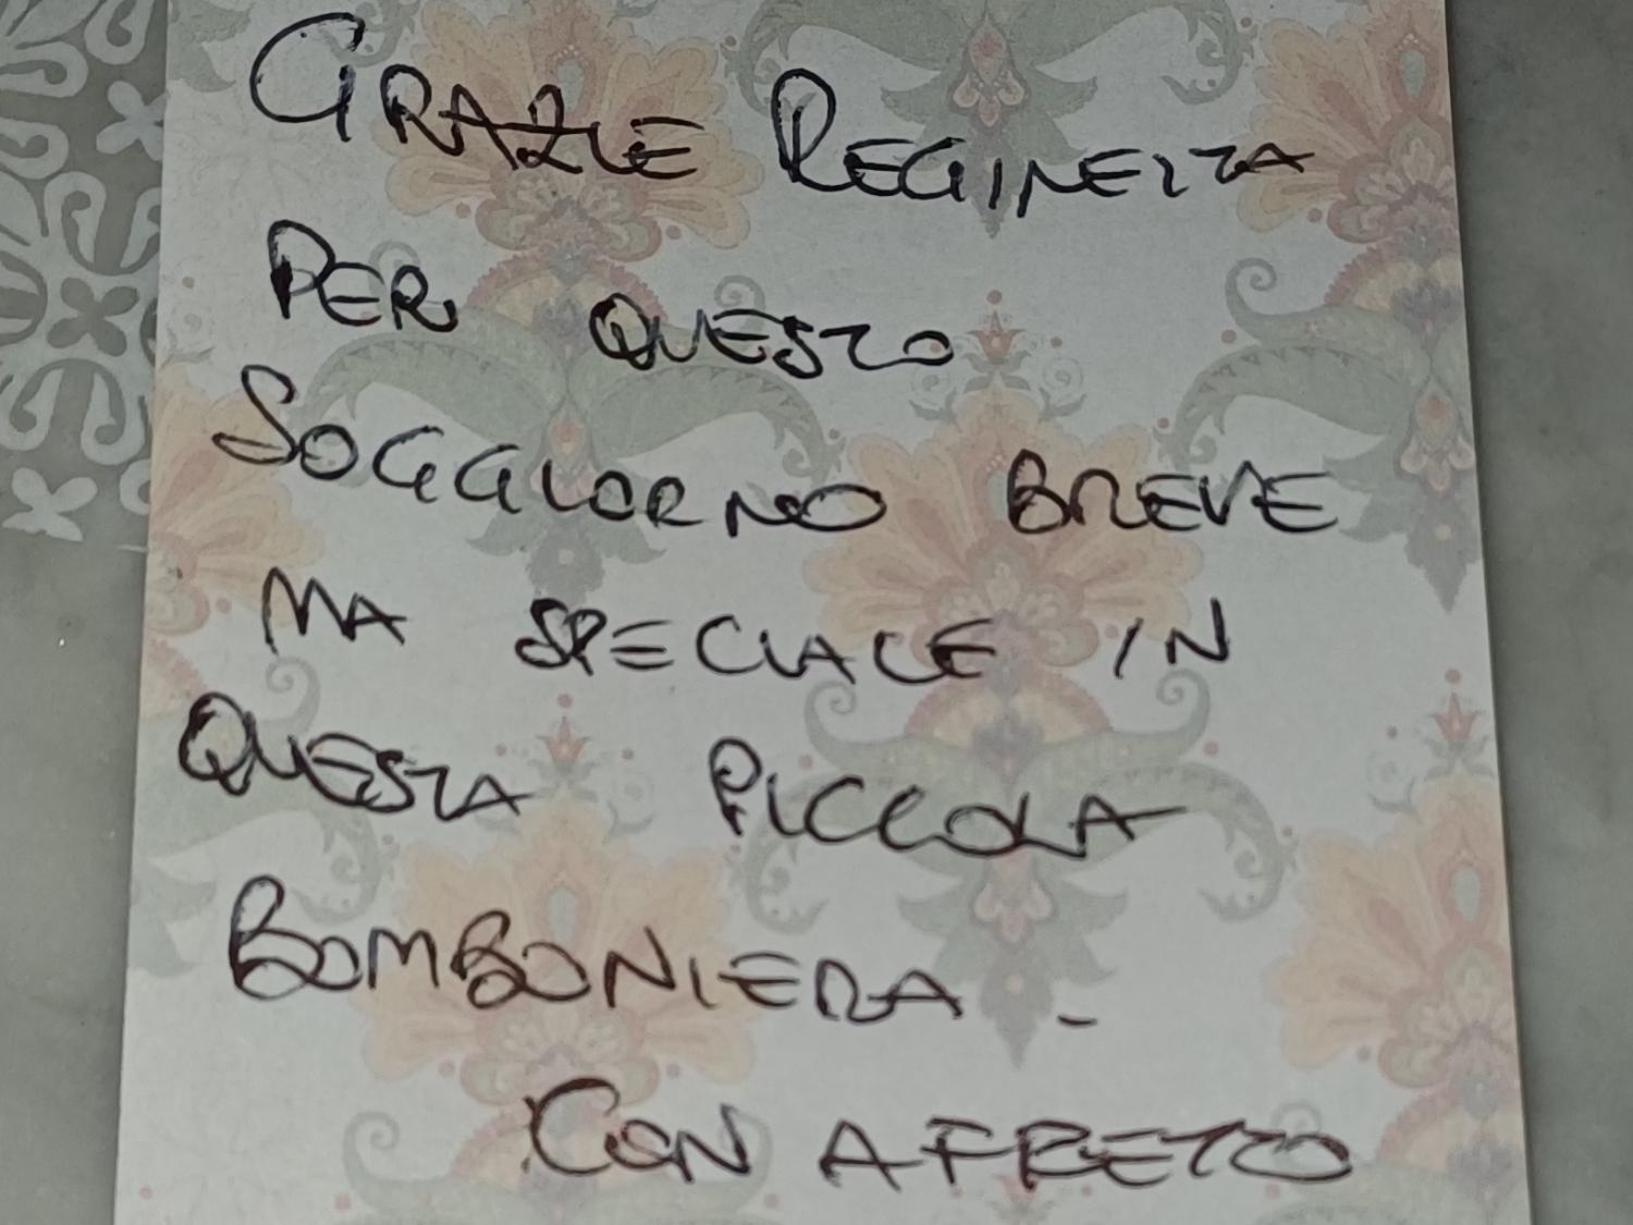 GRAZIE REGINETTA
PER QUESTO
SOGGIORNO BREVE
MA SPECIALE IN
QUESTA PICCOLA
BOMBONIERA.
CON AFFETTO